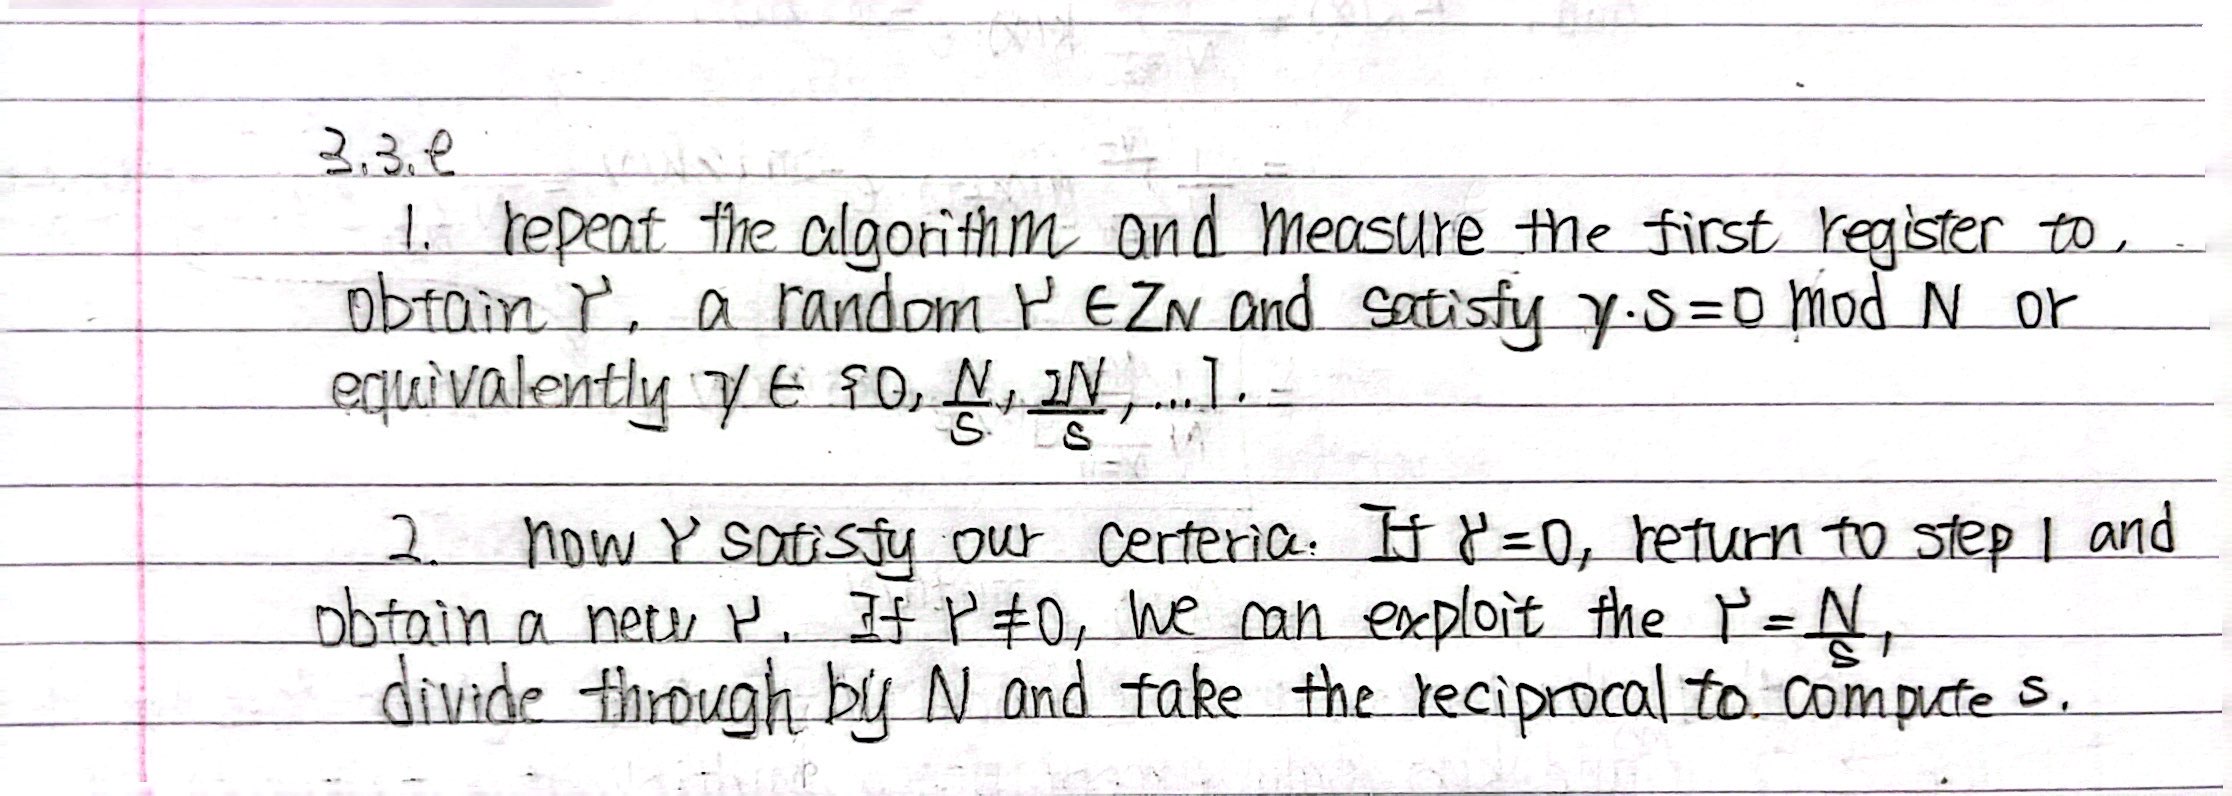 3.3.e
1. repeat the algorithm and measure the first register to
obtain γ, a random γ ∈ZN and satisfy γ·s=0 mod N or
equivalently γ ∈ {0, N/s, 2N/s, ...}.
2. now γ satisfy our certeria. If γ=0, return to step 1 and
obtain a new γ. If γ≠0, we can exploit the γ = N/s,
divide through by N and take the reciprocal to compute s.